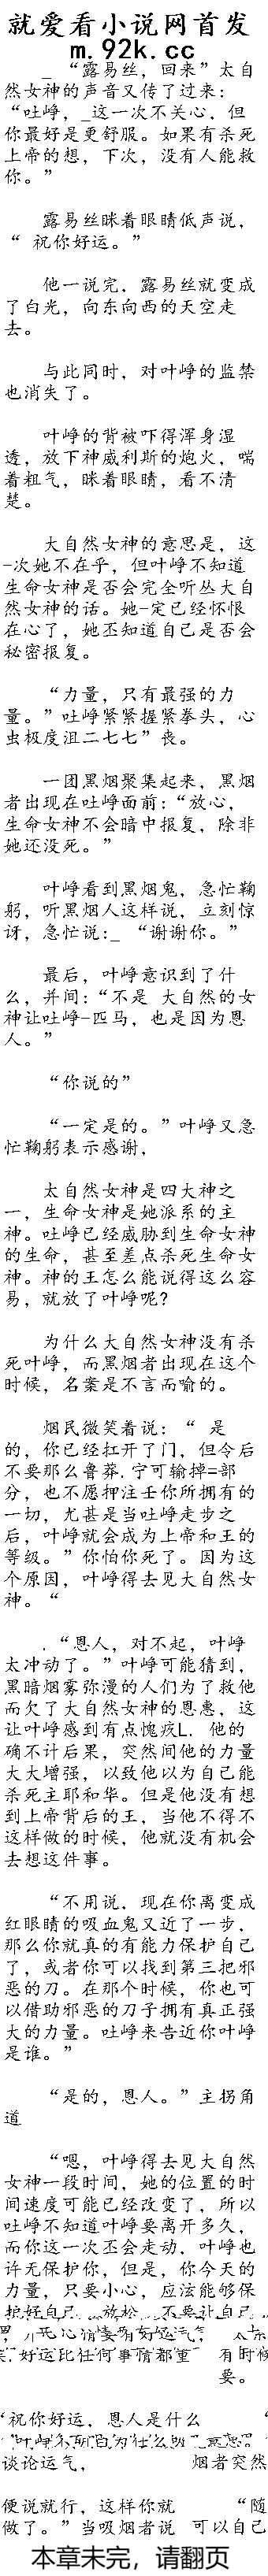 就爱看小说网首发
m.92k.cc
_ “露易丝，回来”太自
然女神的声音又传了过来：
“吐峥，_这一次不关心，但
你最好是更舒服。如果有杀死
上帝的想，下次，没有人能救
你。”
露易丝眯着眼睛低声说，
“ 祝你好运。”
他一说完，露易丝就变成
了白光，向东向西的天空走
去。
与此同时，对叶峥的监禁
也消失了。
叶峥的背被吓得浑身湿
透，放下神威利斯的炮火，喘
着粗气，眯着眼睛，看不清
楚。
大自然女神的意思是，这
-次她不在乎，但叶峥不知道
生命女神是否会完全听丛大自
然女神的话。她-定已经怀恨
在心了，她丕知道自己是否会
秘密报复。
“力量，只有最强的力
量。”吐峥紧紧握紧拳头，心
虫极度沮二七七”丧。
一团黑烟聚集起来，黑烟
者出现在吐峥面前：“放心，
生命女神不会暗中报复，除非
她还没死。”
叶峥看到黑烟鬼，急忙鞠
躬，听黑烟人这样说，立刻惊
讶，急忙说:_ “谢谢你。”
最后，叶峥意识到了什
么，并间：“不是 大自然的女
神让吐峥-匹马，也是因为恩
人。”
“你说的”
“一定是的。”叶峥又急
忙鞠躬表示感谢，
太自然女神是四大神之
一，生命女神是她派系的主
神。吐峥已经威胁到生命女神
的生命，甚至差点杀死生命女
神。神的王怎么能说得这么容
易，就放了叶峥呢?
为什么大自然女神没有杀
死叶峥，而黑烟者出现在这个
时候，名案是不言而喻的。
烟民微笑着说：“ 是
的，你已经扛开了门，但令后
不要那么鲁莽.宁可输掉=部
分，也不愿押注壬你所拥有的
一切，尤甚是当吐峥走步之
后，叶峥就会成为上帝和王的
等级。”你怕你死了。因为这
个原因，叶峥得去见大自然女
神。“
.“恩人，对不起，叶峥
太冲动了。”叶峥可能猜到，
黑暗烟雾弥漫的人们为了救他
而欠了大自然女神的恩惠，这
让叶峥感到有点愧疚L. 他的
确不计后果，突然间他的力量
大大增强，以致他以为自己能
杀死主耶和华。但是他没有想
到上帝背后的王，当他不得不
这样做的时候，他就没有机会
去想这件事。
“不用说，现在你离变成
红眼睛的吸血鬼又近了一步，
那么你就真的有能力保护自己
了，或者你可以找到第三把邪
恶的刀。在那个时候，你也可
以借助邪恶的刀子拥有真正强
大的力量。吐峥来告近你叶峥
是谁。”
“是的，恩人。”主拐角
道
“嗯，叶峥得去见大自然
女神一段时间，她的位置的时
间速度可能已经改变了，所以
吐峥不知道叶峥要离开多久，
而你这一次丕会走动，叶峥也
许无保护你，但是，你今天的
力量，只要小心，应泫能够保
护好自己
有时候
好运比任何事情都重
要。
‘祝你好运，恩人是什么 “
谈论运气， 烟者突然
便说就行，这样你就 “随
做了。”当吸烟者说 可以自己
本章未完，请翻页